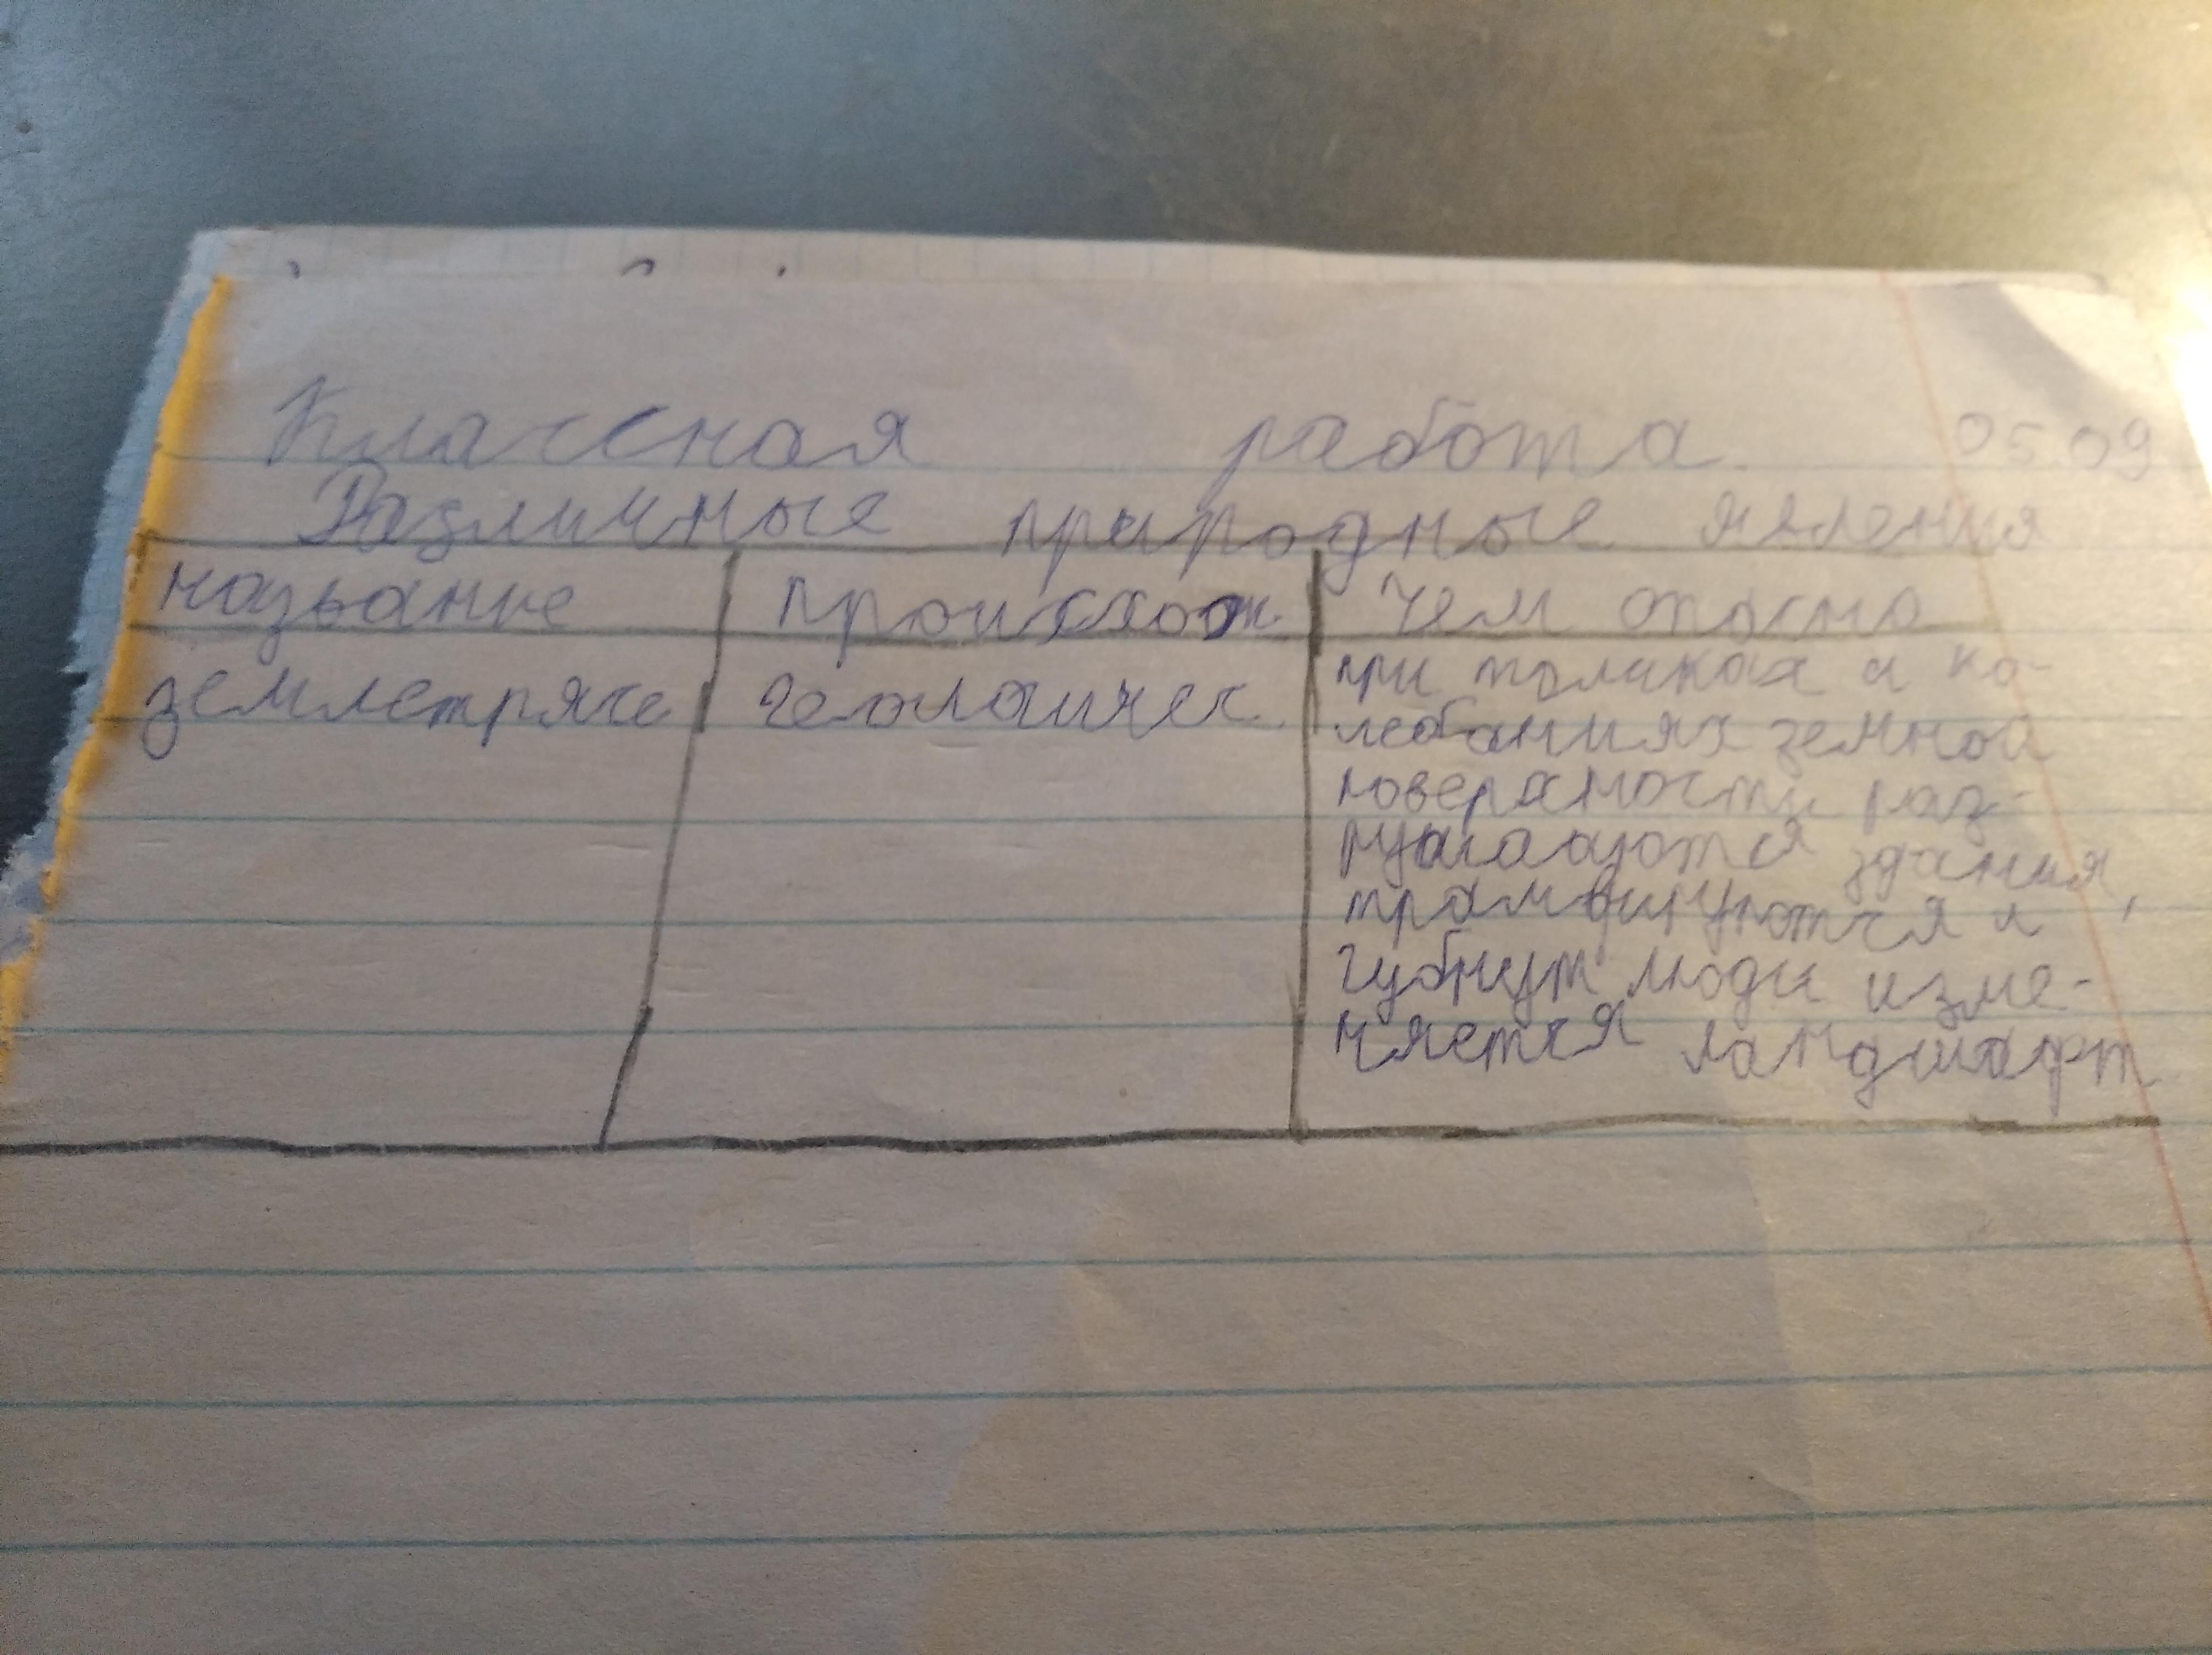 Классная работа 05.09
Различные природные явления
название происхож Чем опасно
землетрясе геологичес
при толчках и ко-
лебаниях земной
поверхности раз-
рушаются здания,
травмируются и
гибнут люди изме-
няется ландшафт